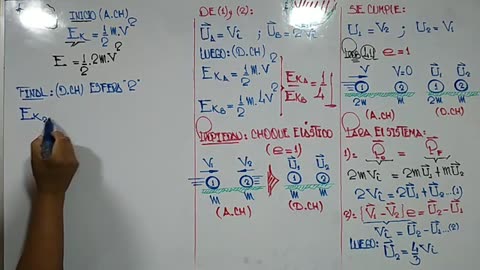 INICIO (A.CH)
E_K = 1/2 m.V²
E = 1/2 . 2m.V²
FINAL : (D.CH) ESFERA "2"
E_K₂
DE (1) y (2):
U⃗_A = V_i ; U⃗_B = 2V_i
LUEGO: (D.CH)
E_KA = 1/2 m.V²
E_KB = 1/2 m.4V²
E_KA / E_KB = 1/4
PROPIEDAD: CHOQUE ELÁSTICO
(e=1)
V₁ V₂ U⃗₁ U⃗₂
1 2 1 2
m m m m
(A.CH) (D.CH)
SE CUMPLE:
U₁ = V₂ ; U₂ = V₁
e=1
V_i V=0 U⃗₁ U⃗₂
1 2 1 2
2m m 2m m
(A.CH) (D.CH)
PARA EL SISTEMA:
1): P⃗₀ = P⃗_F
2mV_i = 2mU⃗₁ + mU⃗₂
2V_i = 2U₁ + U₂ ...(1)
2): |V⃗₁ - V⃗₂| e = U⃗₂ - U⃗₁
V_i = U₂ - U₁ ...(2)
LUEGO: U⃗₂ = 4/3 V_i